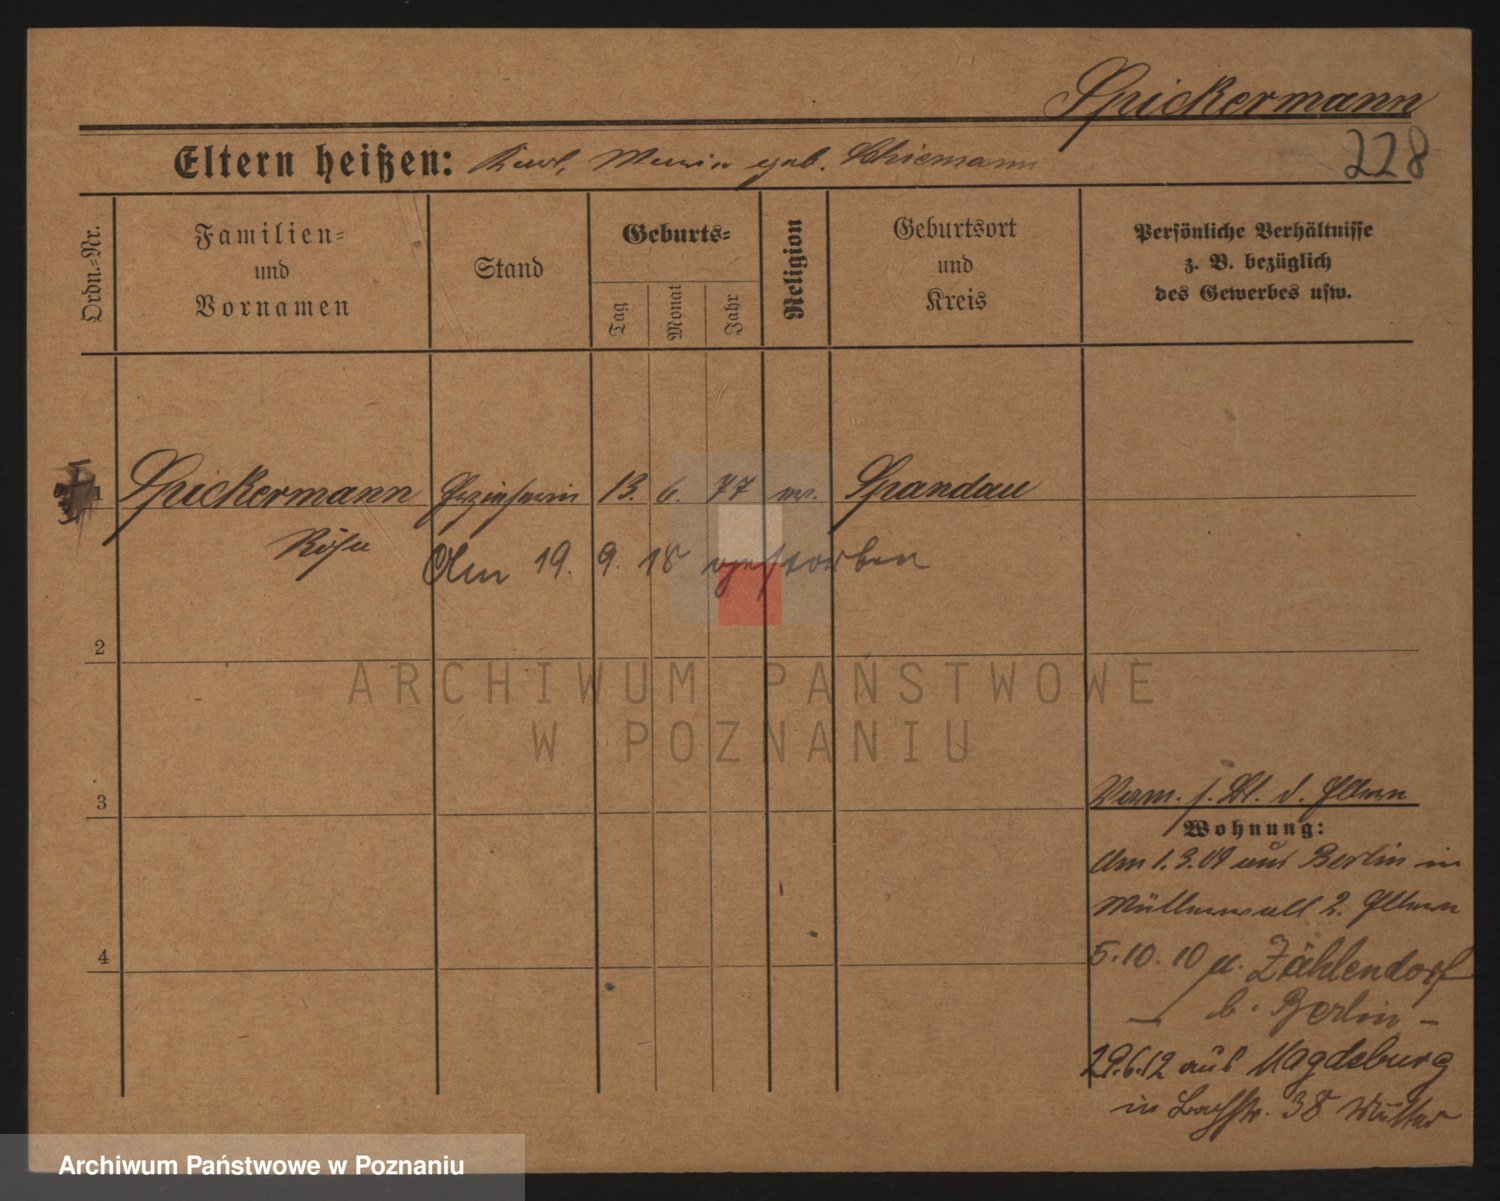 Spickermann
228
Eltern heißen: Karl, Maria geb. Schiemann
Ordn.-Nr.
Familien-
und
Vornamen
Stand
Geburts-
Tag
Monat
Jahr
Religion
Geburtsort
und
Kreis
Persönliche Verhältnisse
z. B. bezüglich
des Gewerbes usw.
1 Spickermann Erzieherin 13. 6. 77 ev. Spandau
Am 19. 9. 18 gestorben
2
ARCHIWUM PAŃSTWOWE
W POZNANIU
3
Verm. s. Bl. d. Eltern
Wohnung:
Am 1.3.09 aus Berlin in
2. Eltern
4
5.10.10 n. Zählendorf
b. Berlin
29.6.12 aus Magdeburg
in Bachstr. 38 Mutter
Archiwum Państwowe w Poznaniu